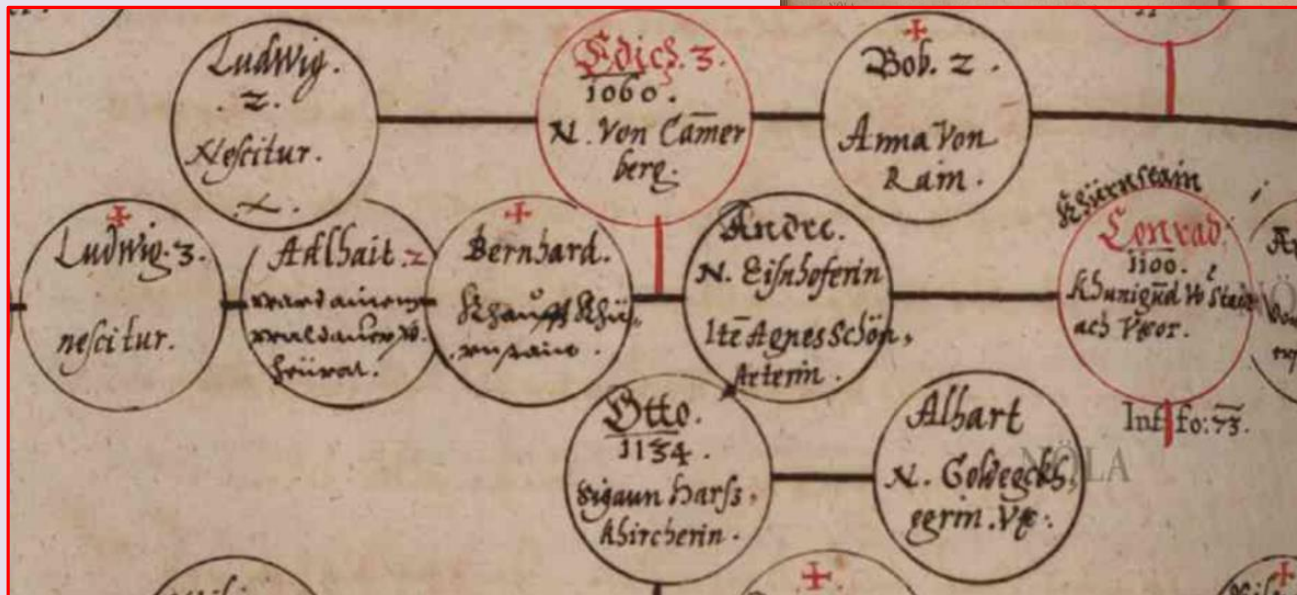 Ludwig.
.2.
Nescitur.
Edich. 3.
1060.
N. Von Cam̄er
berg.
Bob. 2.
Anna Von
Rain.
Ludwig. 3.
nescitur.
Adlhait. 2
Bernhard.
Andre.
N. Eisnhoferin
Itē Agnes Schön,
Aeterin.
Khürnstain
Conrad.
1100.
ach Vxor.
Inf. fo: 73.
Otto.
1134.
Sigaun Harss,
khircherin.
Alhart
N. Goldegckh,
egrin. Vx:
NÖLA